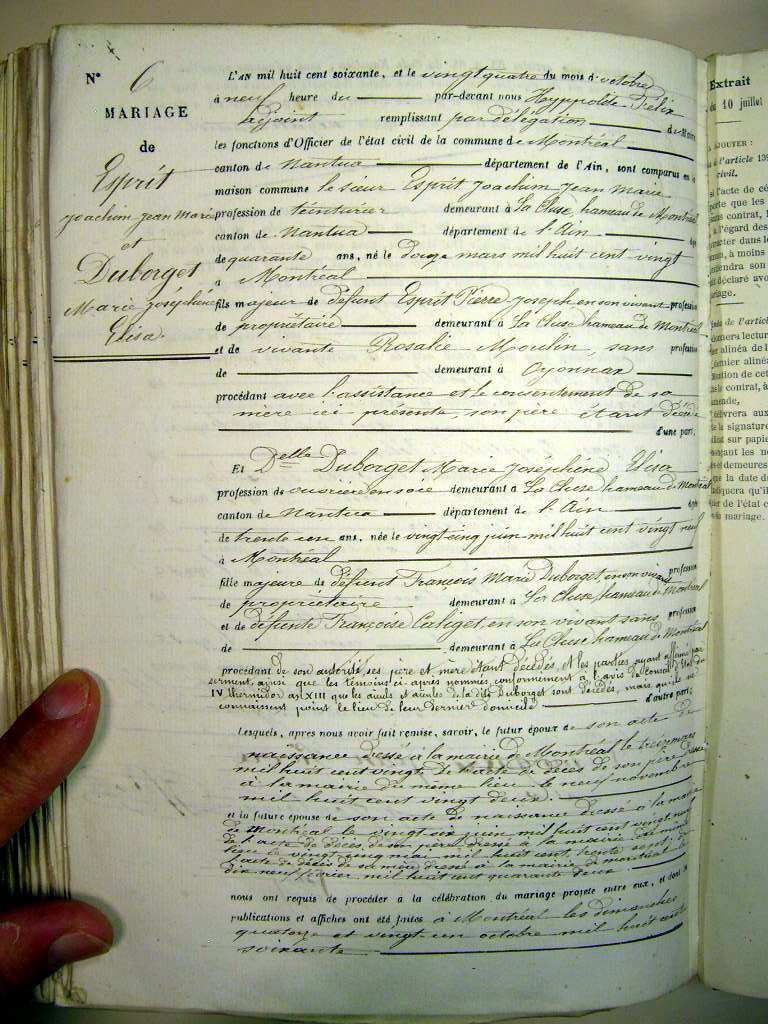 N° 6
MARIAGE
de
Esprit
Joachim Jean Marie
et
Duborget
Marie Joséphine
Elisa.
L'AN mil huit cent soixante, et le vingt quatre du mois d'octobre
à neuf heure du par-devant nous Hyppolite Felix
adjoint remplissant par délégation de Maire
les fonctions d'Officier de l'état civil de la commune de Montréal
canton de Nantua département de l'Ain, sont comparus en la
maison commune le sieur Esprit Joachim Jean Marie
profession de teinturier demeurant à La Cluse, hameau de Montréal
canton de Nantua département de l'Ain âgé
de quarante ans, né le douze mars mil huit cent vingt
à Montréal
fils majeur de défunt Esprit Pierre Joseph en son vivant profession
de propriétaire demeurant à La Cluse hameau de Montréal
et de vivante Rosalie Moulin, sans profession
de demeurant à Oyonnax
procédant avec l'assistance et le consentement de sa
mère ici présente, son père étant décédé
d'une part,
Et Delle Duborget Marie Joséphine Elisa
profession de ouvrière en soie demeurant à La Cluse hameau de Montréal
canton de Nantua département de l'Ain âgée
de trente un ans, née le vingt cinq juin mil huit cent vingt neuf
à Montréal
fille majeure de défunt François Marie Duborget, en son vivant profession
de propriétaire demeurant à La Cluse, hameau de Montréal
et de défunte Françoise Caliget, en son vivant sans profession
de demeurant à La Cluse hameau de Montréal
procédant de son autorité, ses père et mère étant décédés, et les parties ayant affirmé par
serment, ainsi que les témoins ci-après nommés, conformément à l'avis du conseil d'Etat du
IV thermidor an XIII que les aïeuls et aïeules de la dite Duborget sont décédés, mais qu'ils ne
connaissent point le lieu de leur dernier domicile d'autre part;
Lesquels, après nous avoir fait remise, savoir, le futur époux de son acte de
naissance dressé à la mairie de Montréal le treize mars
mil huit cent vingt, de l'acte de décès de son père dressé
à la mairie du même lieu le neuf novembre
mil huit cent vingt deux.
et la future épouse de son acte de naissance dressé à la mairie
de Montréal le vingt six juin mil huit cent vingt neuf
de l'acte de décès de son père dressé à la mairie du même
lieu le vingt cinq mai mil huit cent trente sept; de
l'acte de décès de sa mère dressé à la mairie de Montréal le
dix neuf février mil huit cent quarante deux
nous ont requis de procéder à la célébration du mariage projeté entre eux, et dont les
publications et affiches ont été faites à Montréal les dimanches
quatorze et vingt-un octobre mil huit cent
soixante
Extrait
du 10 juillet
AJOUTER :
à l'article
civil.
l'acte de cé
porte que les
sans contrat,
l'égard des
tracter dans le
à moins
tendra son
déclaré avo
riage.
de l'artic
donnera lectur
alinéa de
dernier aliné
mention de cet
le contrat, à
amende,
délivrera aux
la signature
sur papier
les no
et demeures
que la date de
indiquera qu'il
de l'état c
du mariage.